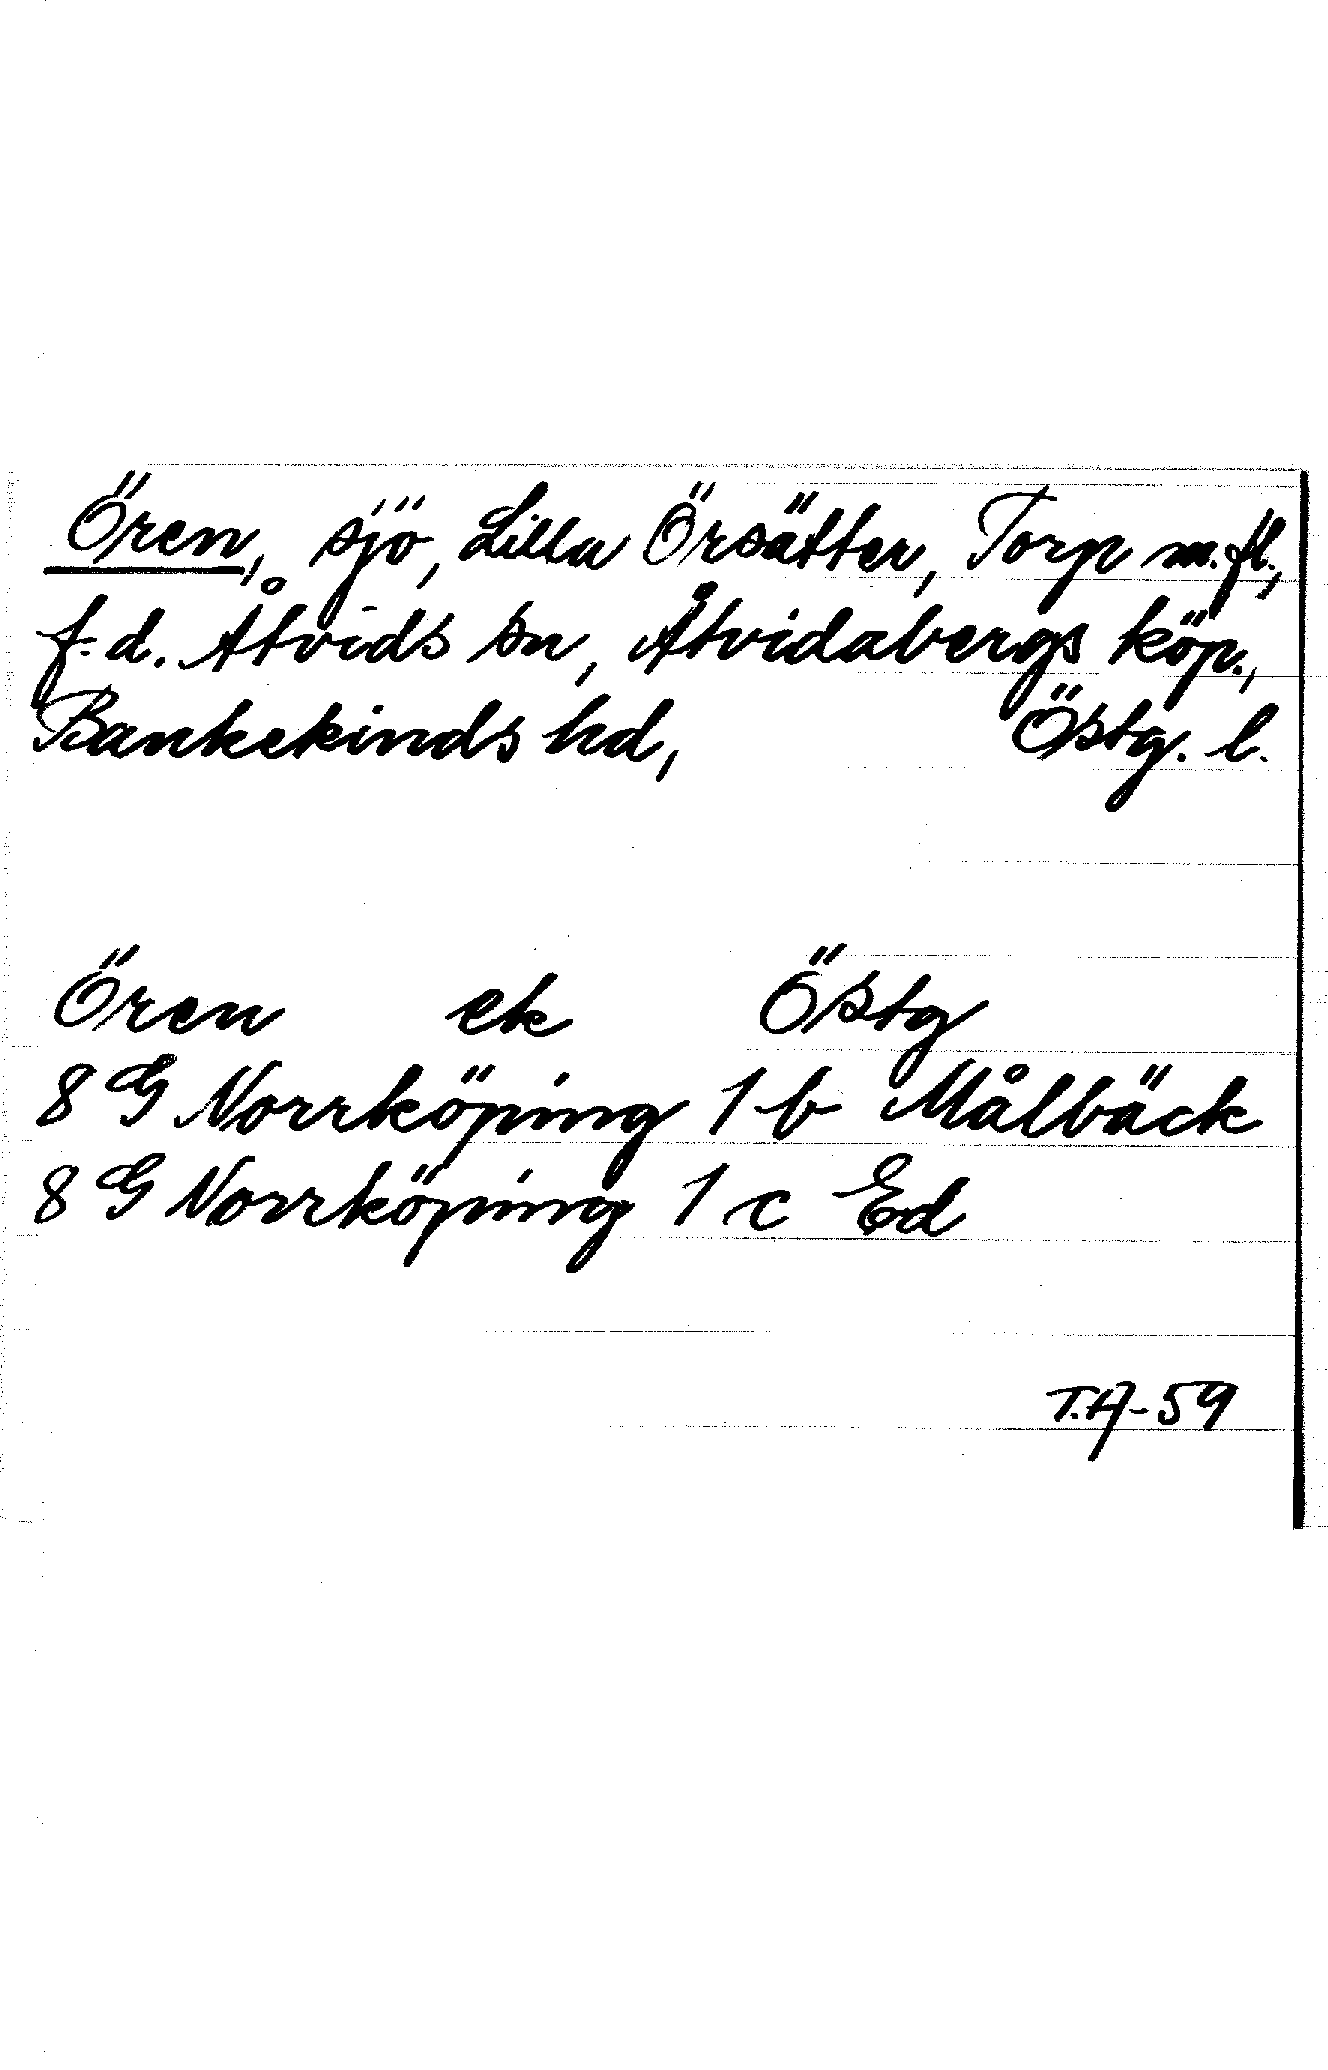 Ören, sjö, Lilla Örsätter, Torp m.fl.,
f.d. Åtvids sn, Åtvidabergs köp.,
Bankekinds hd, Östg. l.
Ören ek Östg
8 G Norrköping 1 b Målbäck
8 G Norrköping 1 c Ed
T.A-59